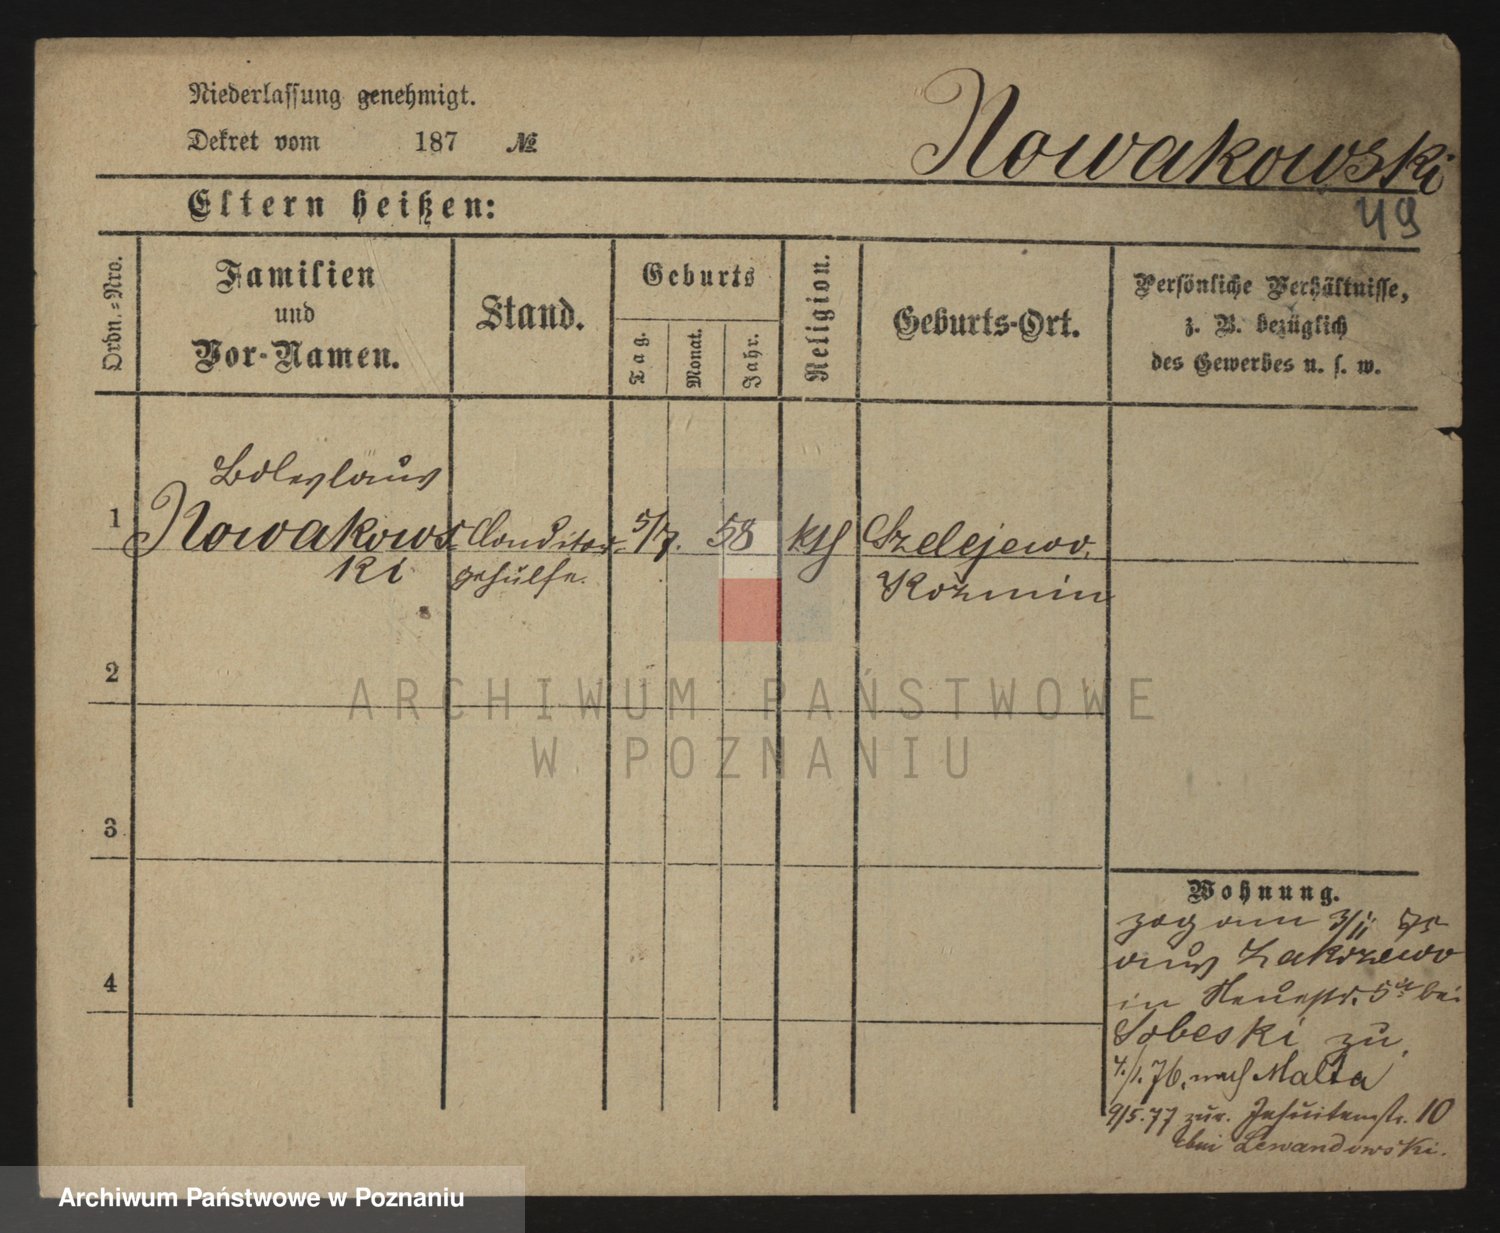 Niederlassung genehmigt.
Dekret vom 187 №
Nowakowski
49
Eltern heißen:
Ordn.-Nro.
Familien
und
Vor-Namen.
Stand.
Geburts
Tag.
Monat.
Jahr.
Religion.
Geburts-Ort.
Persönliche Verhältnisse,
z. B. bezüglich
des Gewerbes u. s. w.
Boleslaus
1 Nowakows Conditor- 5/7. 58 kth Szelejewo.
ki gehülfe. Kozmin
2
ARCHIWUM PAŃSTWOWE
W POZNANIU
3
Wohnung.
zog am 3/11 75
aus Zakrzewo
in Neuestr. 5 bei
Sobeski zu.
4./1. 76. nach Malta
9/5. 77 zur. Jesuitenstr. 10
bei Lewandowski.
4
Archiwum Państwowe w Poznaniu